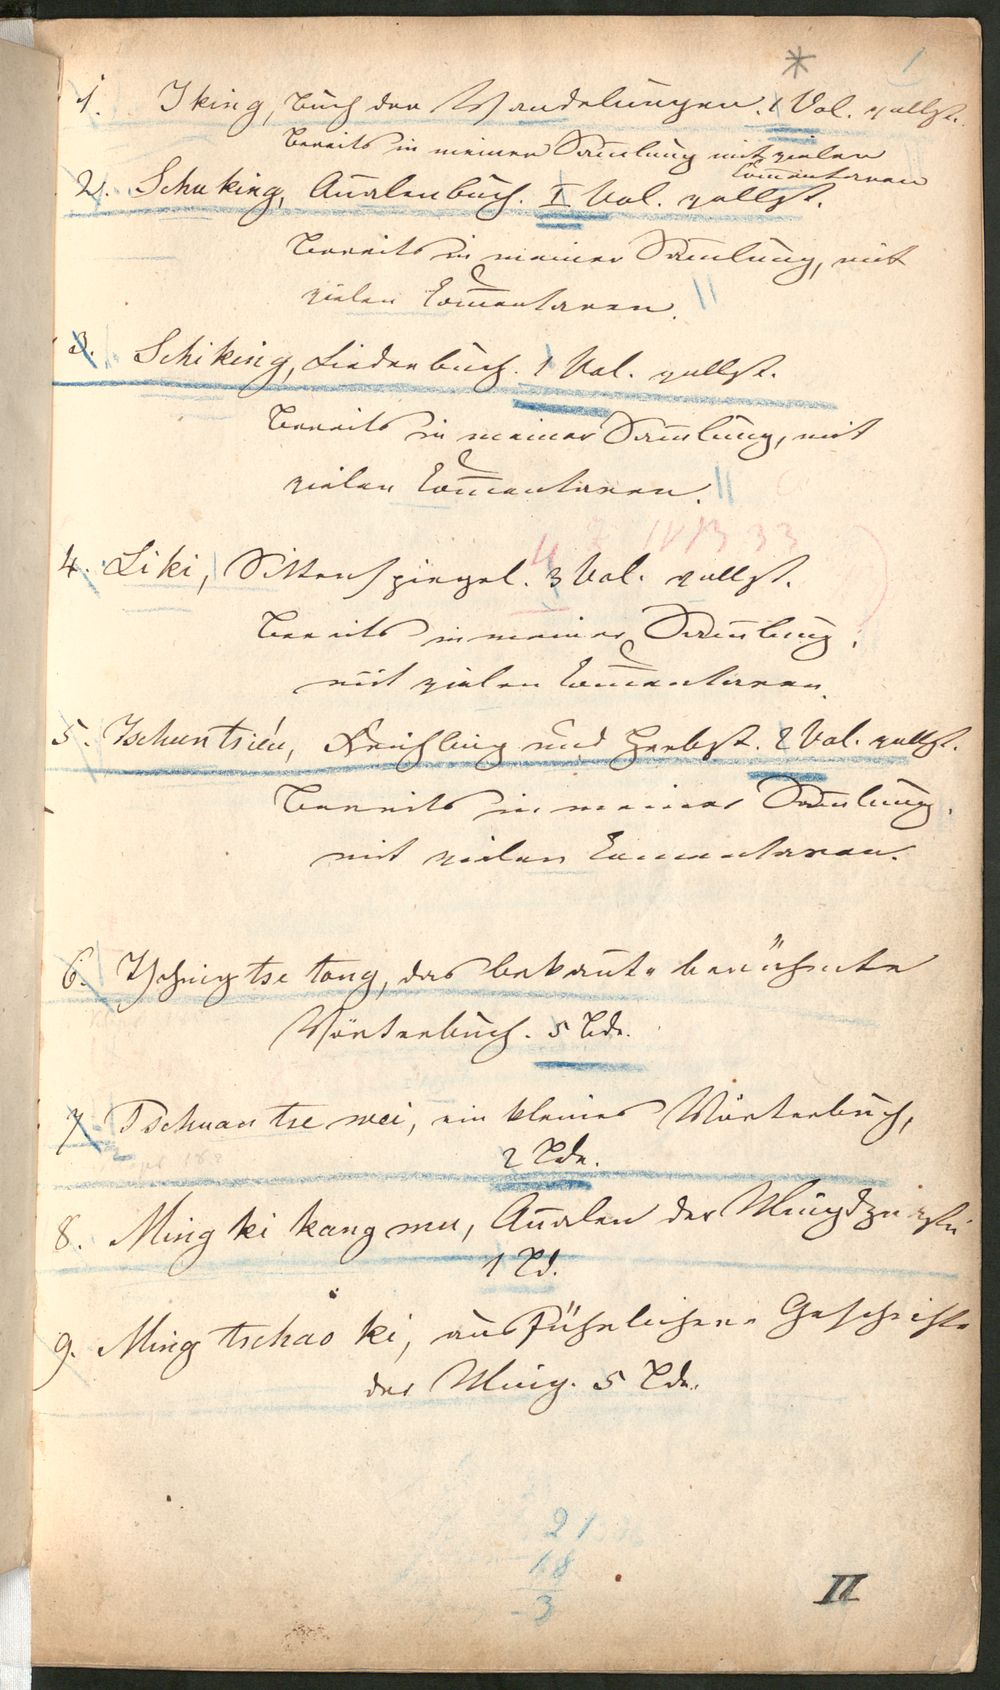 *
1
1. Iking, Buch der Wandelungen. 1 Vol. vollst.
Bereits in meiner Sam̄lung mit vielen
Com̄entaren
2. Schuking, Añalenbuch. I Vol. vollst.
Bereits in meiner Sam̄lung, mit
vielen Com̄entaren.
3. Schiking, Liederbuch. 1 Vol. vollst.
Bereits in meiner Sam̄lung, mit
vielen Com̄entaren.
4. Liki, Sittenspiegel. 3 Vol. vollst.
Bereits in meiner Sam̄lung,
mit vielen Com̄entaren.
5. Tschuntsieu, Frühling und Herbst. 2 Vol. vollst.
Bereits in meiner Sam̄lung,
mit vielen Com̄entaren.
6. Tsching tse tong, das bekan̄te berühmte
Wörterbuch. 5 Bde.
7. Tschuan tse wei, ein kleines Wörterbuch,
2 Bde.
8. Ming ki kang mu, Añalen der Mingdynastie
1 Bd.
9. Ming tschao ki, ausführlichere Geschichte
der Ming. 5 Bde.
21
18
3
II